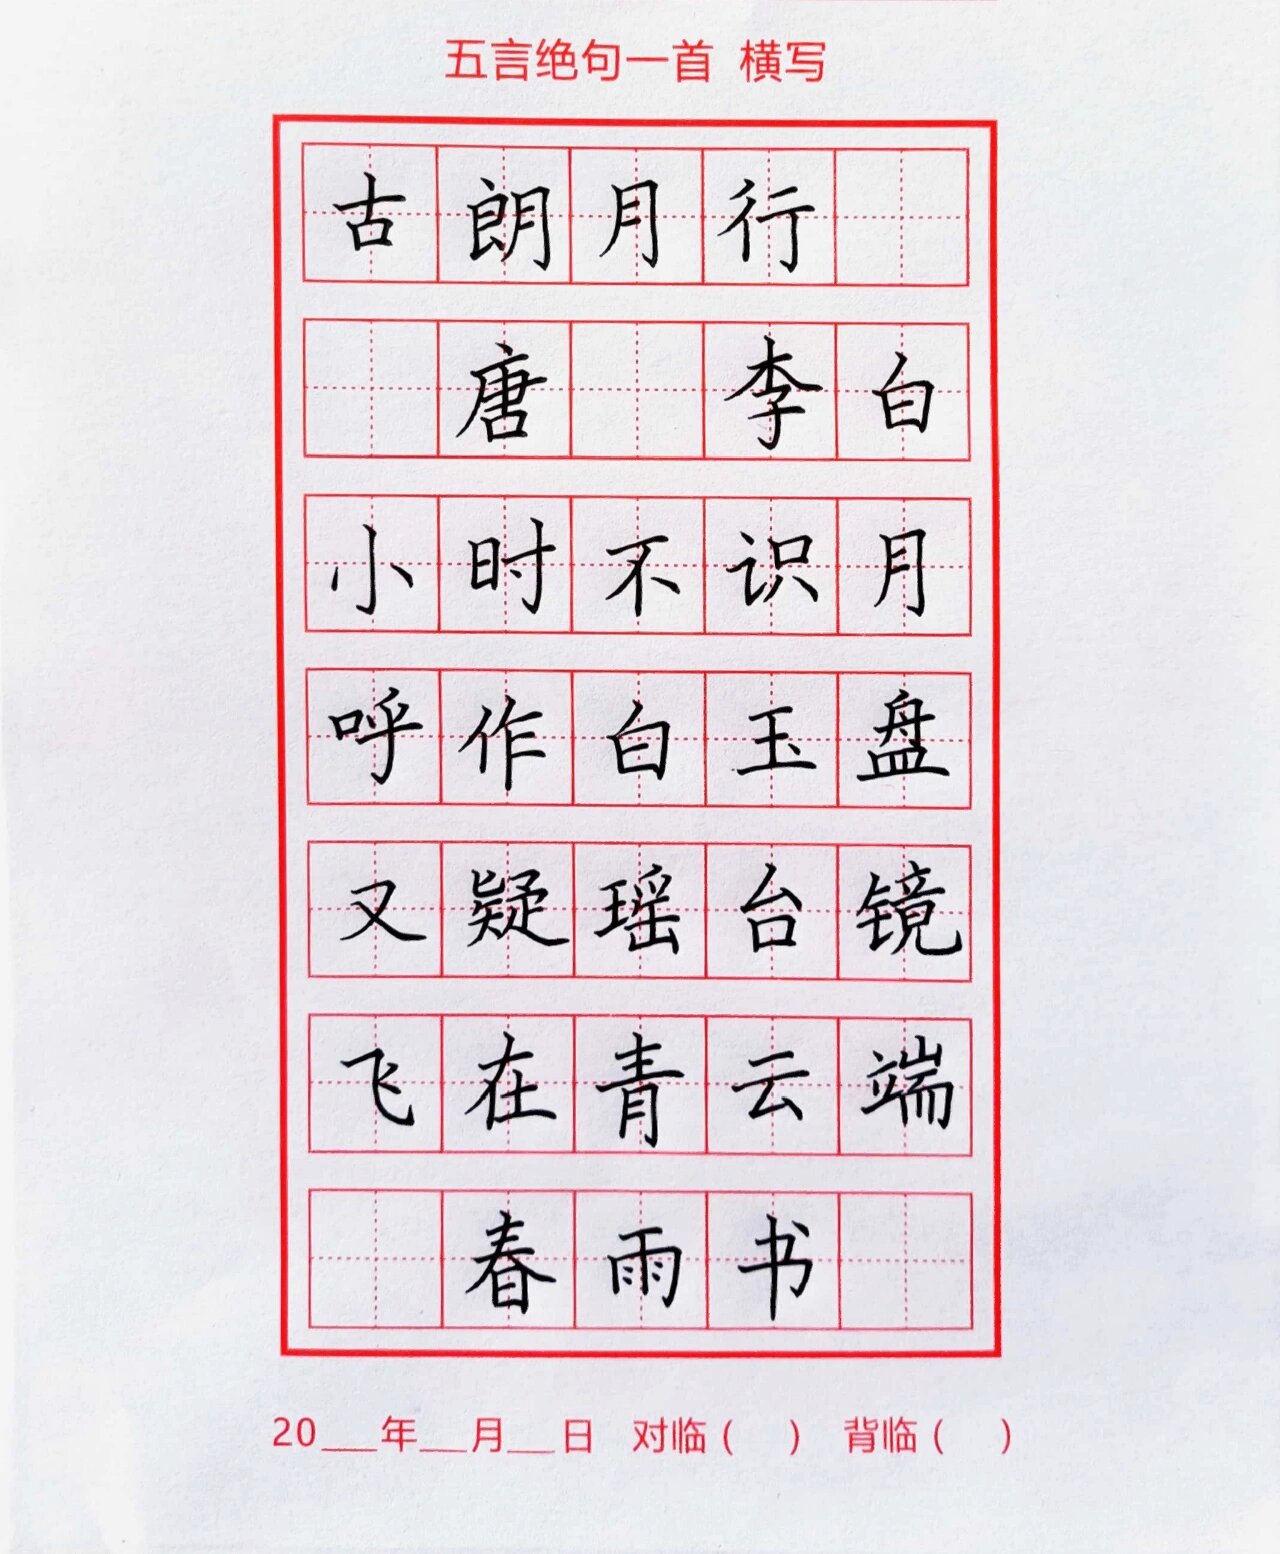 五言绝句一首 横写
古朗月行
唐 李白
小时不识月
呼作白玉盘
又疑瑶台镜
飞在青云端
春雨书
20___年___月___日 对临( ) 背临( )